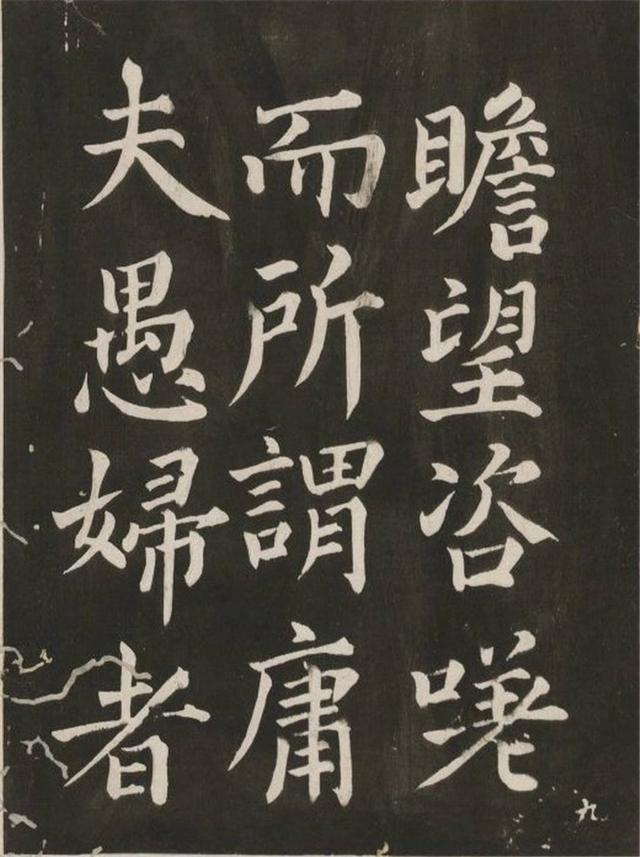 瞻望咨嗟
而所謂庸
夫愚婦者
九